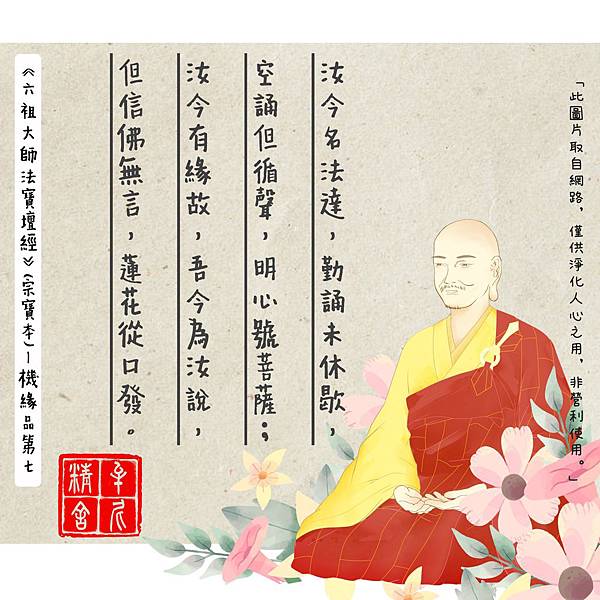 「此圖片取自網路，僅供淨化人心之用，非營利使用。」
汝今名法達，勤誦未休歇，
空誦但循聲，明心號菩薩；
汝今有緣故，吾今為汝說，
但信佛無言，蓮花從口發。
《六祖大師法寶壇經》(宗寶本)－機緣品第七
精舍